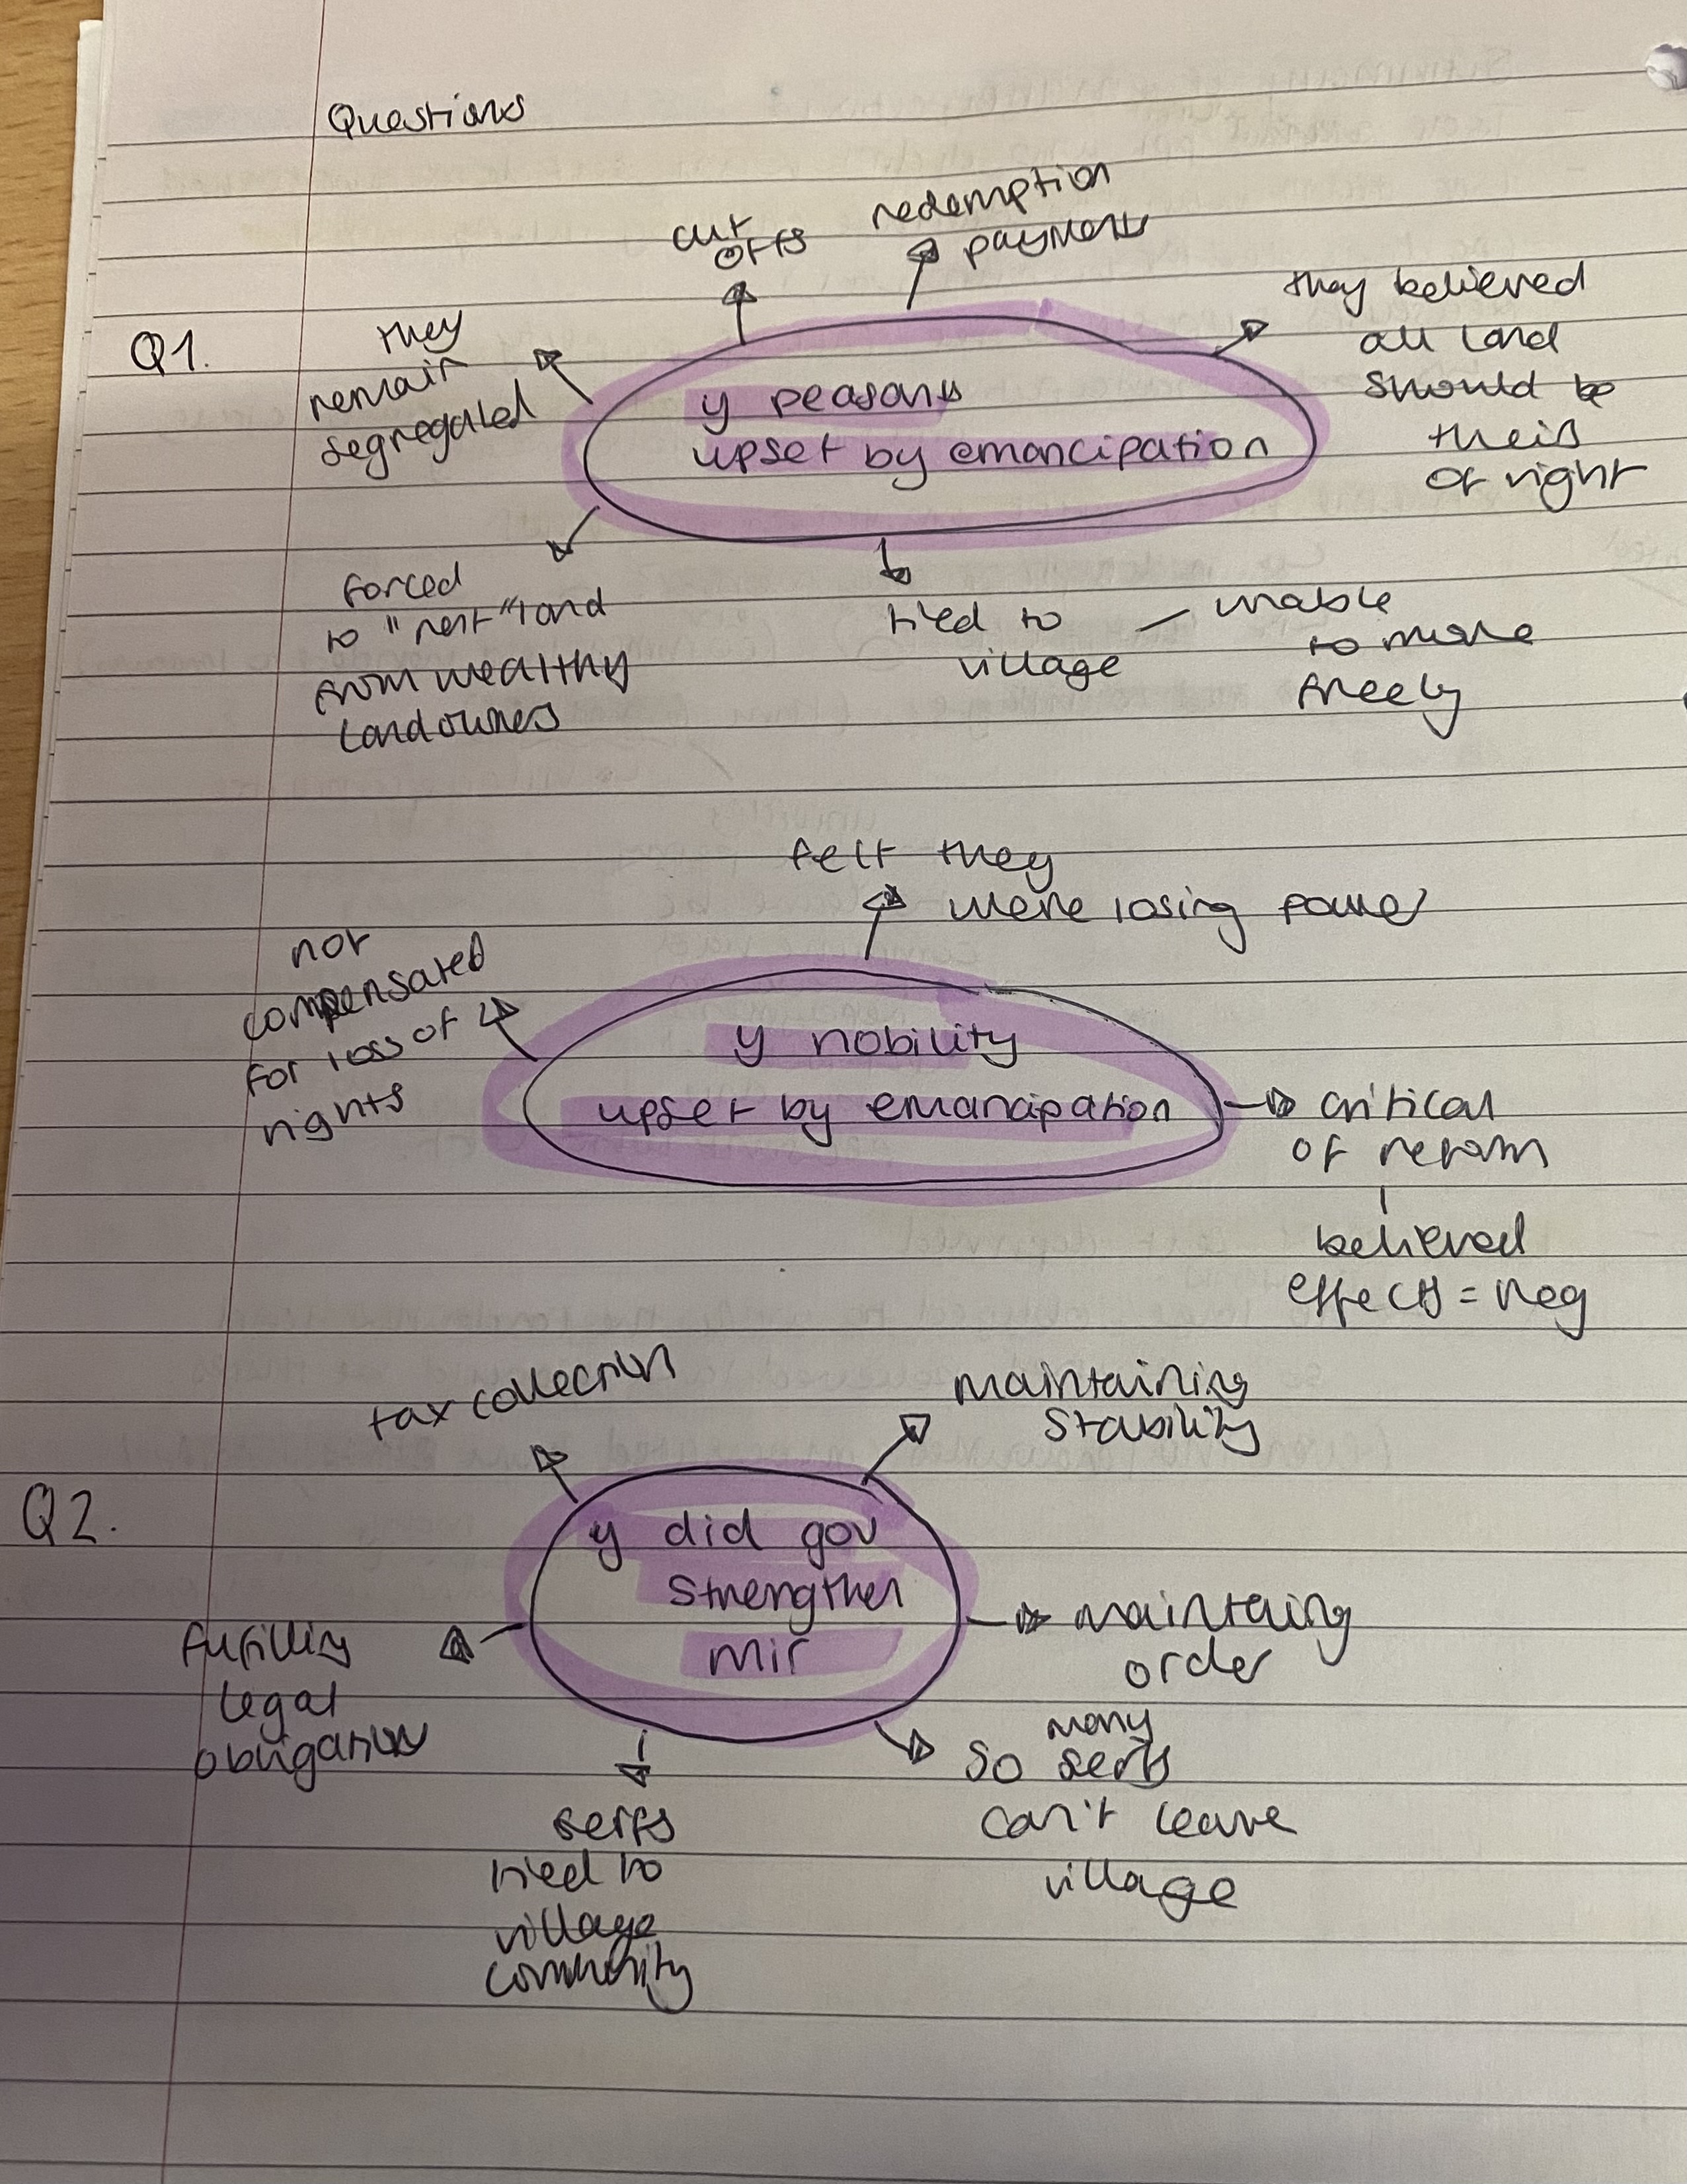 Questions
Q1.
cut
offs
redemption
payments
they believed
all land
should be
theirs
of right
they
remain
segregated
y peasants
upset by emancipation
forced
to "rent" land
from wealthy
landowners
tied to
village
unable
to move
freely
felt they
were losing power
not
compensated
for loss of
rights
y nobility
upset by emancipation
critical
of reform
believed
effects = neg
Q2.
tax collection
maintaining
stability
y did gov
strengthen
mir
maintaing
order
fufilling
legal
obligations
many
so serfs
can't leave
village
serfs
tied to
village
community